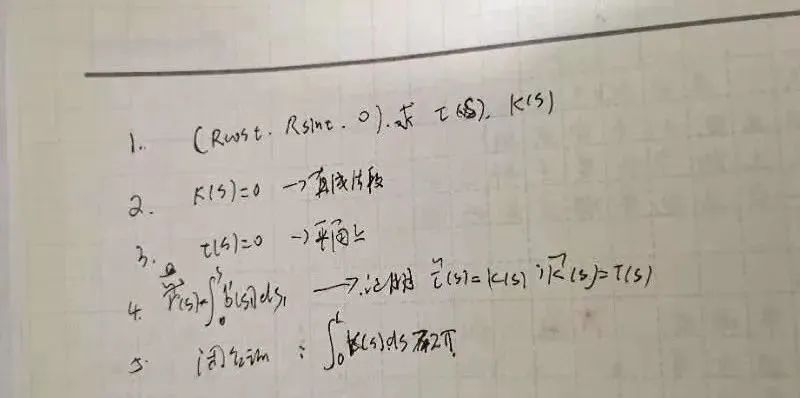 1. (Rcost, Rsint, 0). 求 τ(s), K(s)
2. K(s)=0 → 直线片段
3. τ(s)=0 → 平面上
4. r̃(s)=∫₀ˢ b(s₁)ds₁ → 证明 τ̃(s)=K(s); K̃(s)=τ(s)
5. 闭 : ∫₀ᴸ K(s)ds 2π